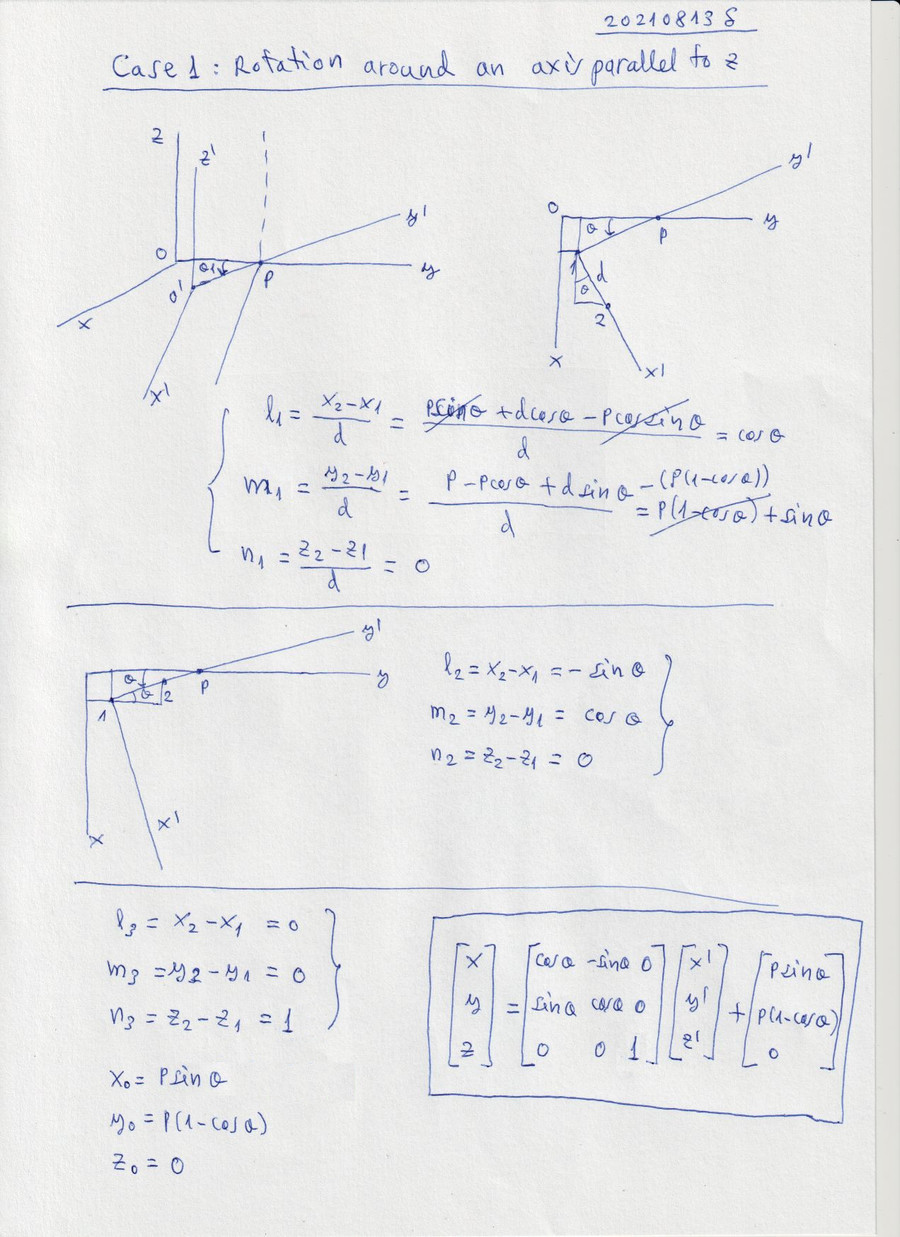 20210813 δ
Case 1: Rotation around an axis parallel to z
z
z'
y'
O
θ1
P
y
O'
x
x'
y'
O
θ
P
y
1
d
θ
2
x
x'
l₁ = (x₂-x₁)/d = (Psinθ + dcosθ - Pcos sinθ)/d = cosθ
m₁ = (y₂-y₁)/d = (P-Pcosθ + dsinθ - (P(1-cosθ)))/d = P(1-cosθ) + sinθ
n₁ = (z₂-z₁)/d = 0
y'
θ
θ
2
P
y
1
x'
x
l₂ = x₂-x₁ = -sinθ
m₂ = y₂-y₁ = cosθ
n₂ = z₂-z₁ = 0
l₃ = x₂-x₁ = 0
m₃ = y₂-y₁ = 0
n₃ = z₂-z₁ = 1
x₀ = Psinθ
y₀ = P(1-cosθ)
z₀ = 0
[x] [cosθ -sinθ 0] [x'] [Psinθ]
[y] = [sinθ cosθ 0] [y'] + [P(1-cosθ)]
[z] [0 0 1] [z'] [0]